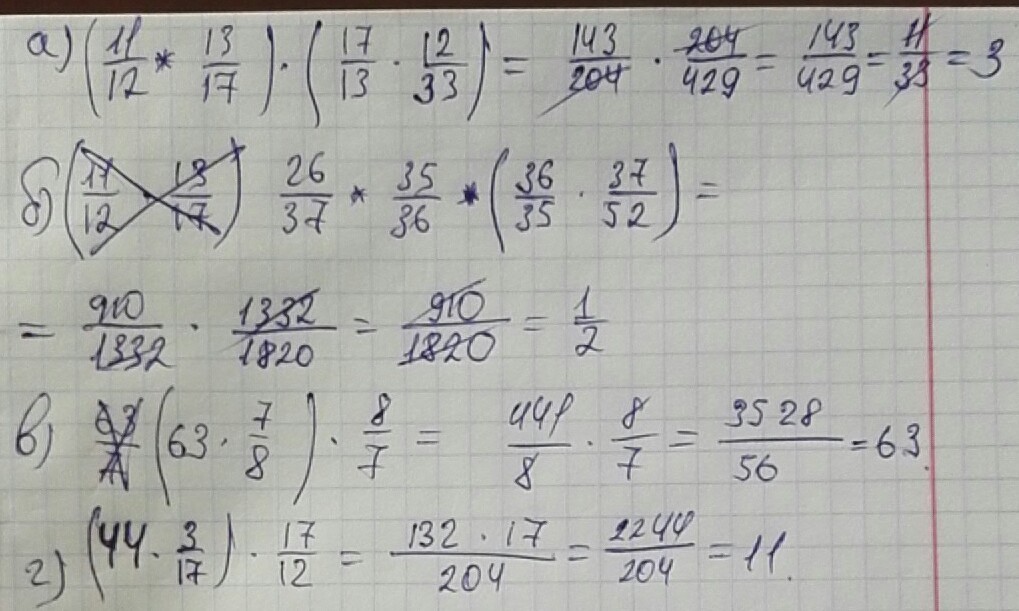 а) (11/12 * 13/17) · (17/13 · 12/33) = 143/204 · 204/429 = 143/429 = 11/33 = 3
б) (17/12 · 13/17) 26/37 * 35/36 * (36/35 · 37/52) =
= 910/1332 · 1332/1820 = 910/1820 = 1/2
в) (63 · 7/8) · 8/7 = 441/8 · 8/7 = 3528/56 = 63.
г) (44 · 3/17) · 17/12 = 132 · 17/204 = 2244/204 = 11.